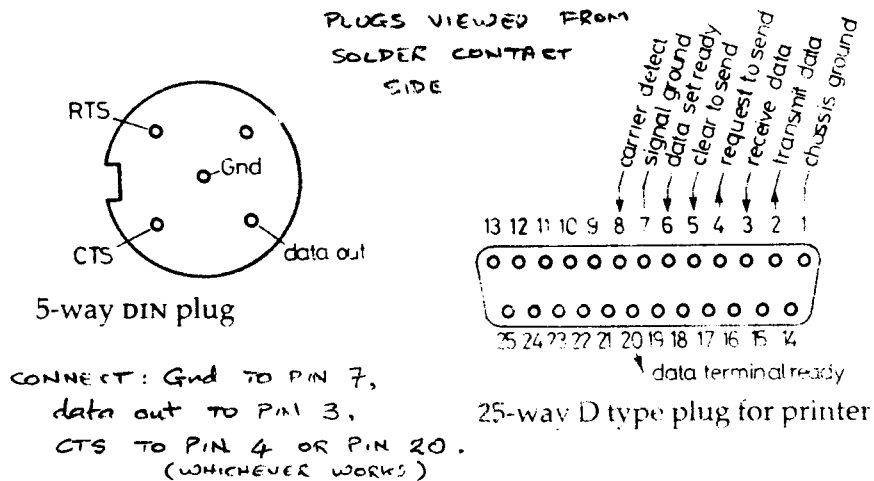 PLUGS VIEWED FROM
SOLDER CONTACT
SIDE
RTS
Gnd
CTS
data out
5-way DIN plug
carrier detect
signal ground
data set ready
clear to send
request to send
receive data
transmit data
chassis ground
13 12 11 10 9 8 7 6 5 4 3 2 1
25 24 23 22 21 20 19 18 17 16 15 14
data terminal ready
25-way D type plug for printer
CONNECT: Gnd TO PIN 7,
data out TO PIN 3,
CTS TO PIN 4 OR PIN 20.
(WHICHEVER WORKS)